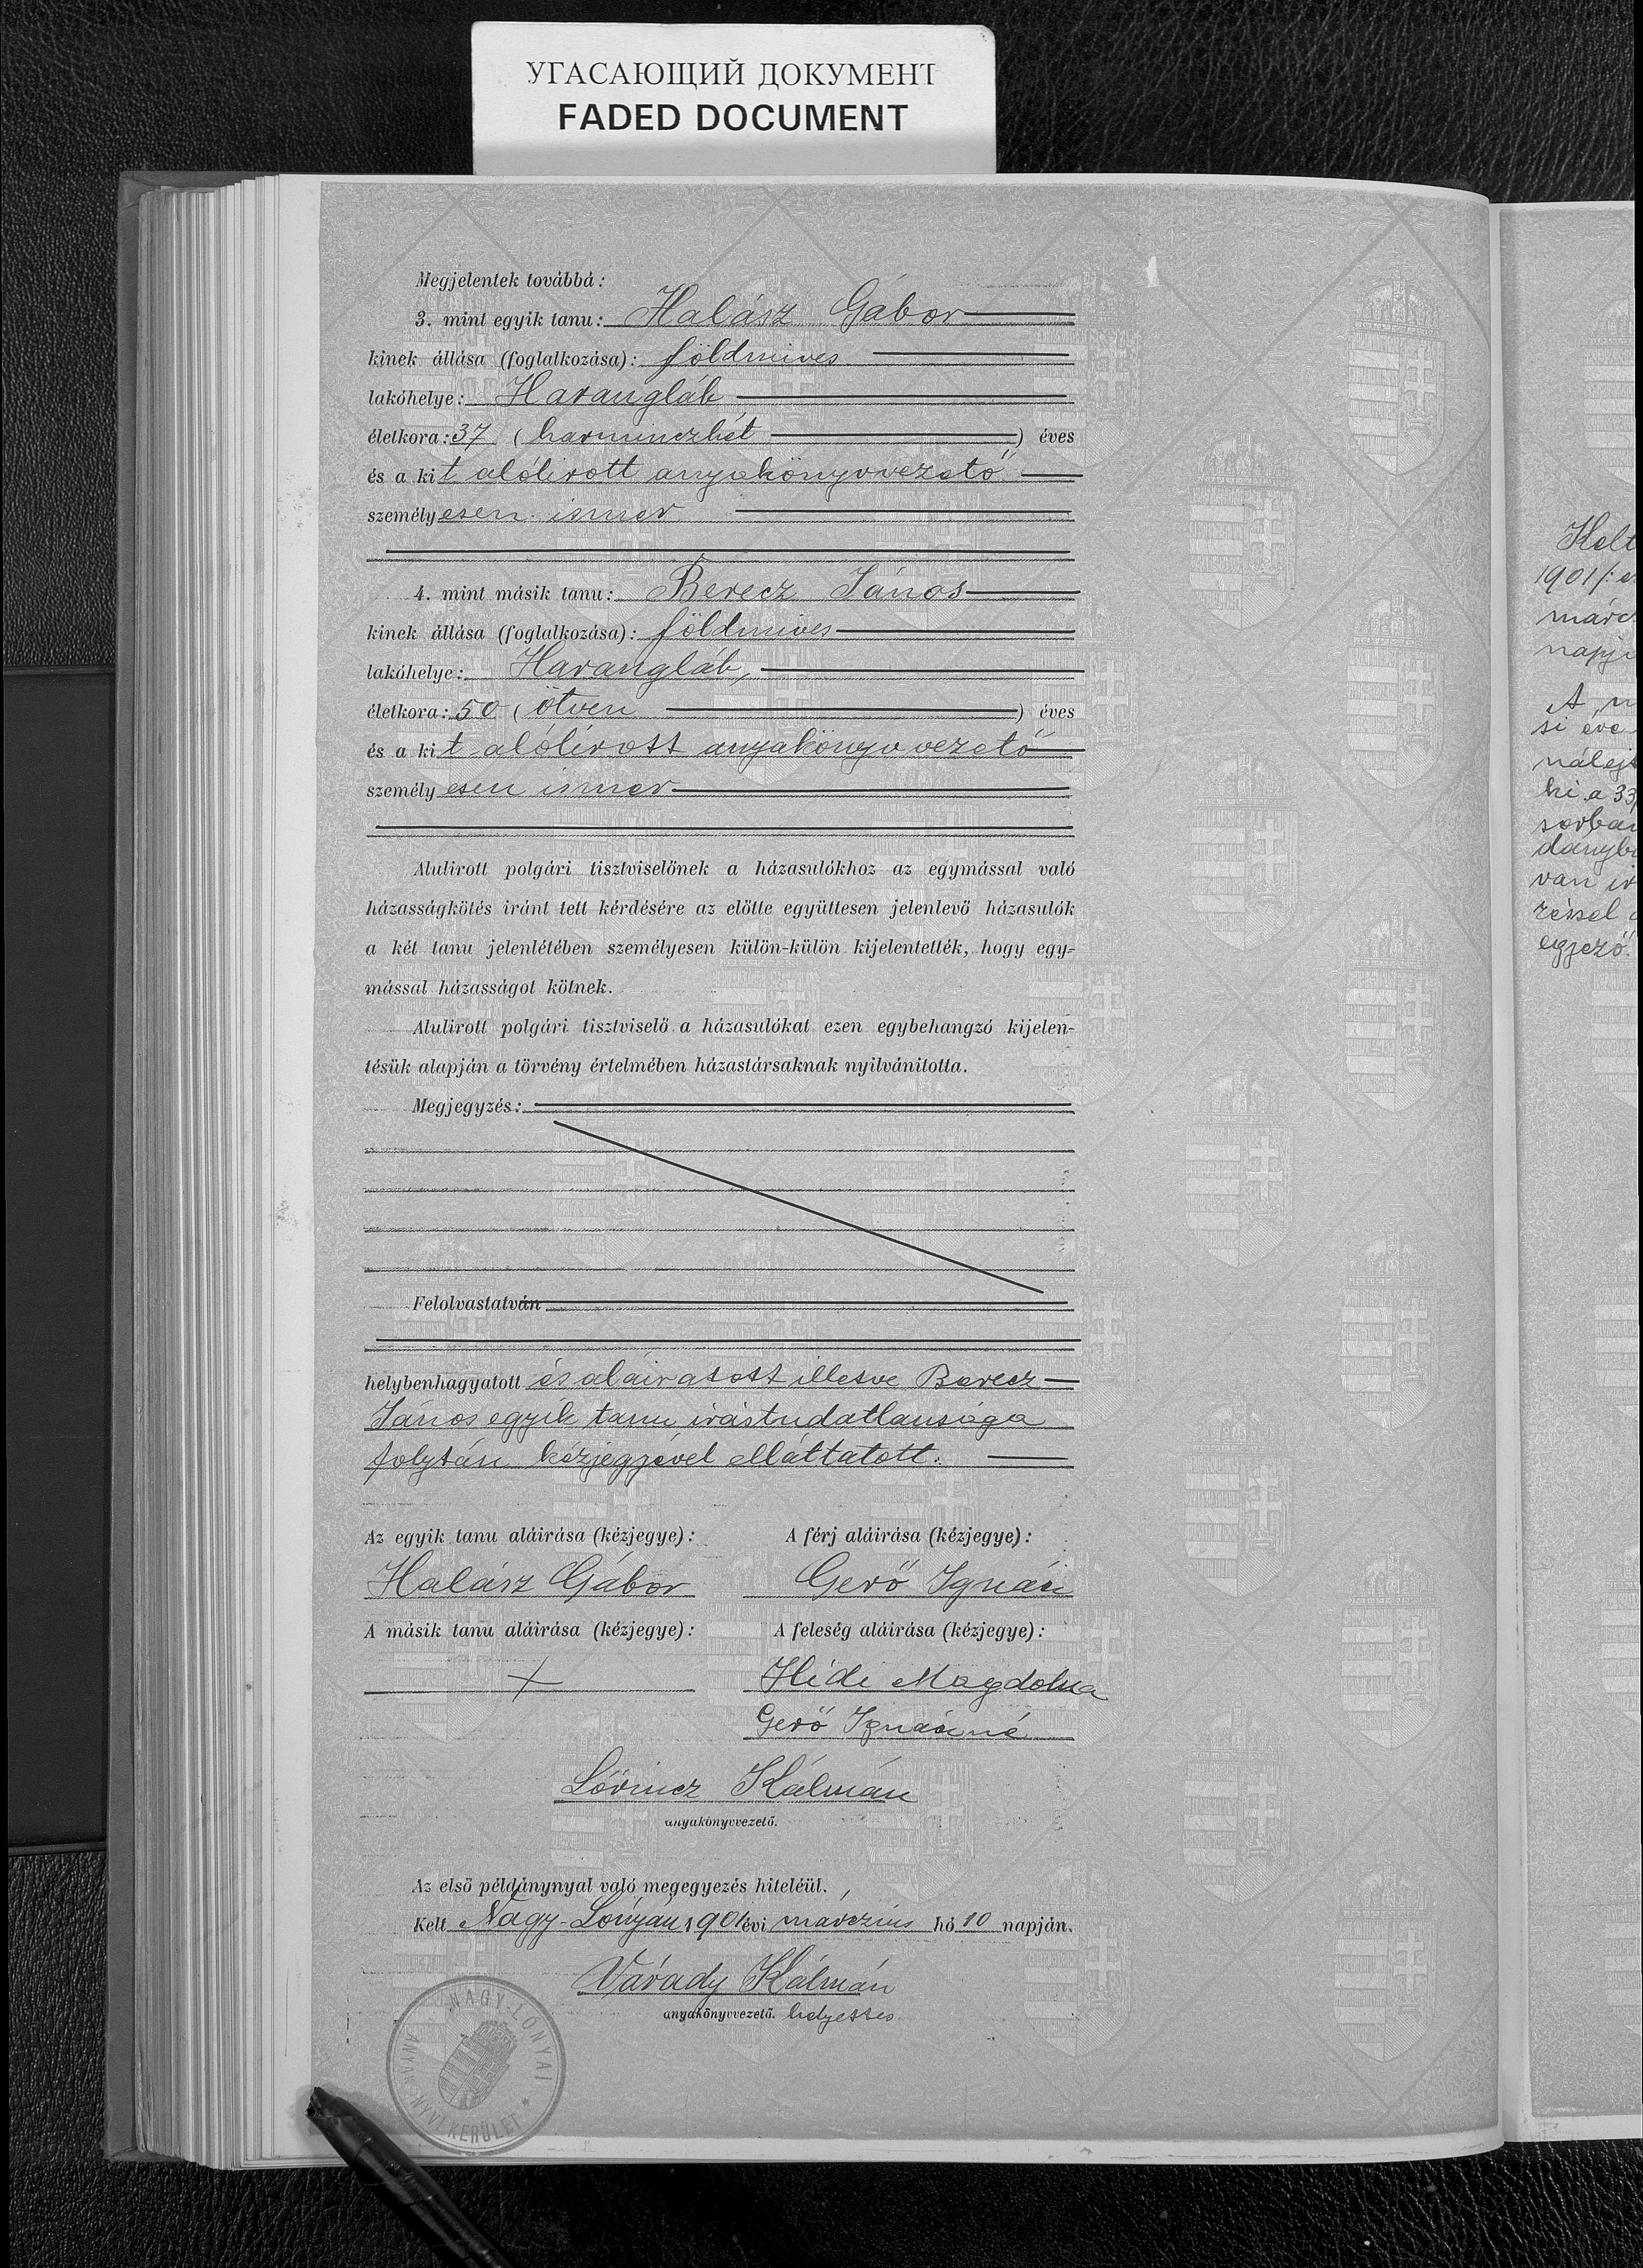 УГАСАЮЩИЙ ДОКУМЕНТ
FADED DOCUMENT
Megjelentek továbbá:
3. mint egyik tanu: Halász Gábor
kinek állása (foglalkozása): földmives
lakóhelye: Harangláb
életkora: 37 (harminczhét) éves
és a kit alólirott anyakönyvvezető
személyesen ismer
4. mint másik tanu: Berecz János
kinek állása (foglalkozása): földmives
lakóhelye: Harangláb,
életkora: 50 (ötven) éves
és a kit alólirott anyakönyvvezető
személyesen ismer
Alulirott polgári tisztviselőnek a házasulókhoz az egymással való
házasságkötés iránt tett kérdésére az előtte együttesen jelenlevő házasulók
a két tanu jelenlétében személyesen külön-külön kijelentették, hogy egy-
mással házasságot kötnek.
Alulirott polgári tisztviselő a házasulókat ezen egybehangzó kijelen-
tésük alapján a törvény értelmében házastársaknak nyilvánitotta.
Megjegyzés:
Felolvastatván
helybenhagyatott és aláiratott illetve Berecz
János egyik tanu irástudatlansága
folytán kézjegyével elláttatott.
Az egyik tanu aláirása (kézjegye): A férj aláirása (kézjegye):
Halász Gábor Gerő Ignác
A másik tanu aláirása (kézjegye): A feleség aláirása (kézjegye):
+ Hidi Magdolna
Gerő Ignácné
Lőrincz Kálmán
anyakönyvvezető.
Az első példánynyal való megegyezés hiteléül.
Kelt Nagy-Lónyán, 1901 évi márczius hó 10 napján.
Várady Kálmán
anyakönyvvezető. helyettes
NAGY-LÓNYAI
ANYAKÖNYVI KERÜLET
Kelt
1901
márc
napj
A
si éve
ki a 33
sorban
van
egyező.